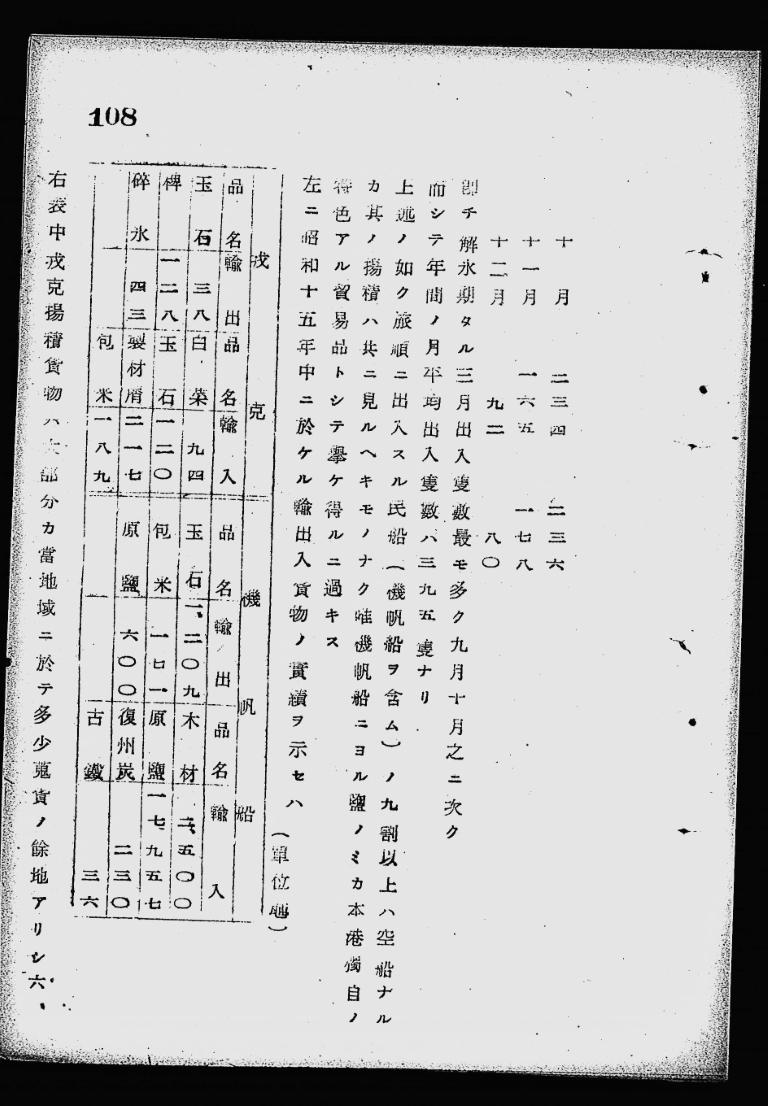 108
十月 二三四 二三六
十一月 一六五 一七八
十二月 九二 八〇
卽チ解氷期タル三月出入隻數最モ多ク九月十月之ニ次ク
而シテ年間ノ月平均出入隻數ハ三九五隻ナリ
上述ノ如ク旅順ニ出入スル民船（機帆船ヲ含ム）ノ九割以上ハ空船ナル
カ其ノ揚積ハ共ニ見ルヘキモノナク唯機帆船ニヨル鹽ノミカ本港獨自ノ
特色アル貿易品トシテ擧ケ得ルニ過キス
左ニ昭和十五年中ニ於ケル輸出入貨物ノ實績ヲ示セハ
（單位瓲）
戎克 機帆船
品名 輸出 品名 輸入 品名 輸出 品名 輸入
玉石 三八 白菜 九四 玉石 一、二〇九 木材 二、五〇〇
稗 一二八 玉石 一二〇 包米 一七一 原鹽 一七、九五七
碎氷 四三 製材屑 二一七 原鹽 六〇〇 復州炭 二三〇
一 包米 一八九 一 古鐵 三六
右表中戎克揚積貨物ハ大部分カ當地域ニ於テ多少蒐貨ノ餘地アリシ六、